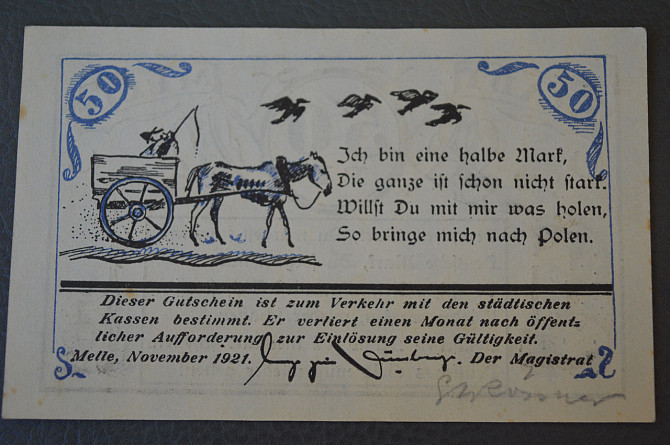 50 50
Ich bin eine halbe Mark,
Die ganze ist schon nicht stark.
Willst Du mit mir was holen,
So bringe mich nach Polen.
Dieser Gutschein ist zum Verkehr mit den städtischen
Kassen bestimmt. Er verliert einen Monat nach öffent-
licher Aufforderung zur Einlösung seine Gültigkeit.
Melle, November 1921. Der Magistrat